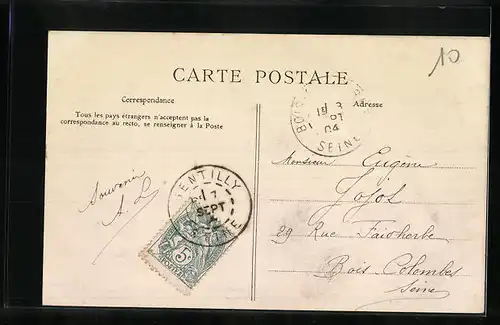 10
CARTE POSTALE
Correspondance
Adresse
Tous les pays étrangers n'acceptent pas la
correspondance au recto, se renseigner à la Poste
SEINE
04
GENTILLY
7
SEPT
5
Souvenir
A. L.
Monsieur Eugène
29 Rue Faidherbe
Bois-Colombes
Seine